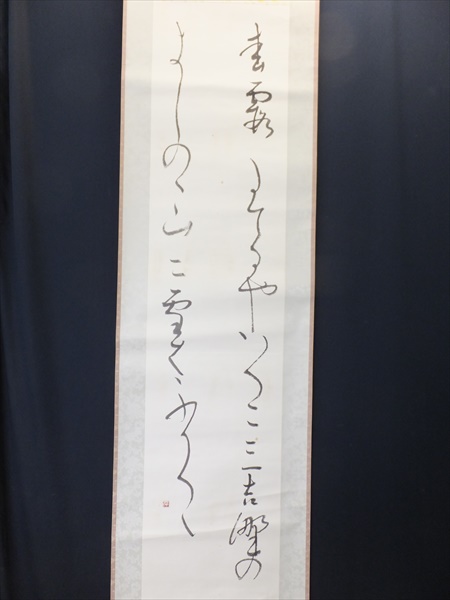 春霞たてるやいつこミ吉野の
よしのゝ山ニ雪はふりつゝ